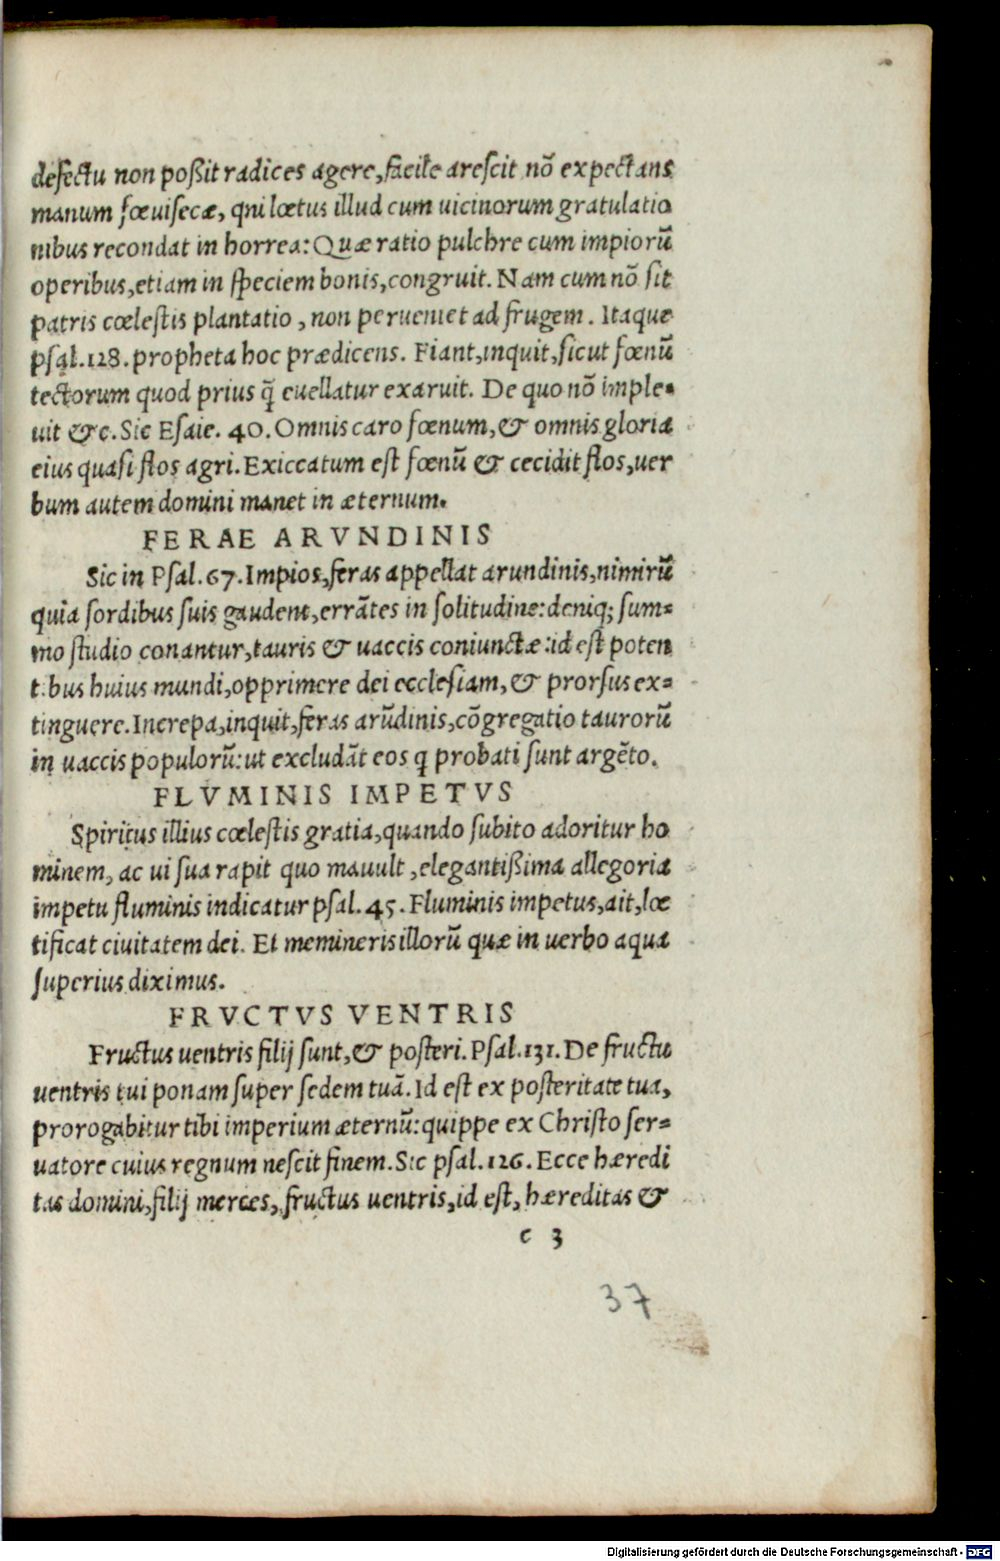 defectu non poßit radices agere, facile arescit nō expectans
manum fœuisecæ, qui lœtus illud cum uicinorum gratulatio
nibus recondat in horrea: Quæ ratio pulchre cum impiorū
operibus, etiam in speciem bonis, congruit. Nam cum nō sit
patris cœlestis plantatio, non perueniet ad frugem. Itaque
psal. 128. propheta hoc prædicens. Fiant, inquit, sicut fœnū
tectorum quod prius q̄ euellatur exaruit. De quo nō imple-
uit &c. Sic Esaie. 40. Omnis caro fœnum, & omnis gloria
eius quasi flos agri. Exiccatum est fœnū & cecidit flos, uer
bum autem domini manet in æternum.
FERAE ARVNDINIS
Sic in Psal. 67. Impios, feras appellat arundinis, nimirū
quia sordibus suis gaudent, errātes in solitudine: deniq; sum-
mo studio conantur, tauris & uaccis coniunctæ: id est poten
t bus huius mundi, opprimere dei ecclesiam, & prorsus ex-
tinguere. Increpa, inquit, feras arūdinis, cōgregatio taurorū
in uaccis populorū: ut excludāt eos q probati sunt argēto.
FLVMINIS IMPETVS
Spiritus illius cœlestis gratia, quando subito adoritur ho
minem, ac ui sua rapit quo mauult, elegantißima allegoria
impetu fluminis indicatur psal. 45. Fluminis impetus, ait, lœ
tificat ciuitatem dei. Et memineris illorū quæ in uerbo aqua
superius diximus.
FRVCTVS VENTRIS
Fructus uentris filij sunt, & posteri. Psal. 131. De fructu
uentris tui ponam super sedem tuā. Id est ex posteritate tua,
prorogabitur tibi imperium æternū: quippe ex Christo ser-
uatore cuius regnum nescit finem. Sic psal. 126. Ecce hæredi
tas domini, filij merces, fructus uentris, id est, hæreditas &
c 3
37
Digitalisierung gefördert durch die Deutsche Forschungsgemeinschaft - DFG